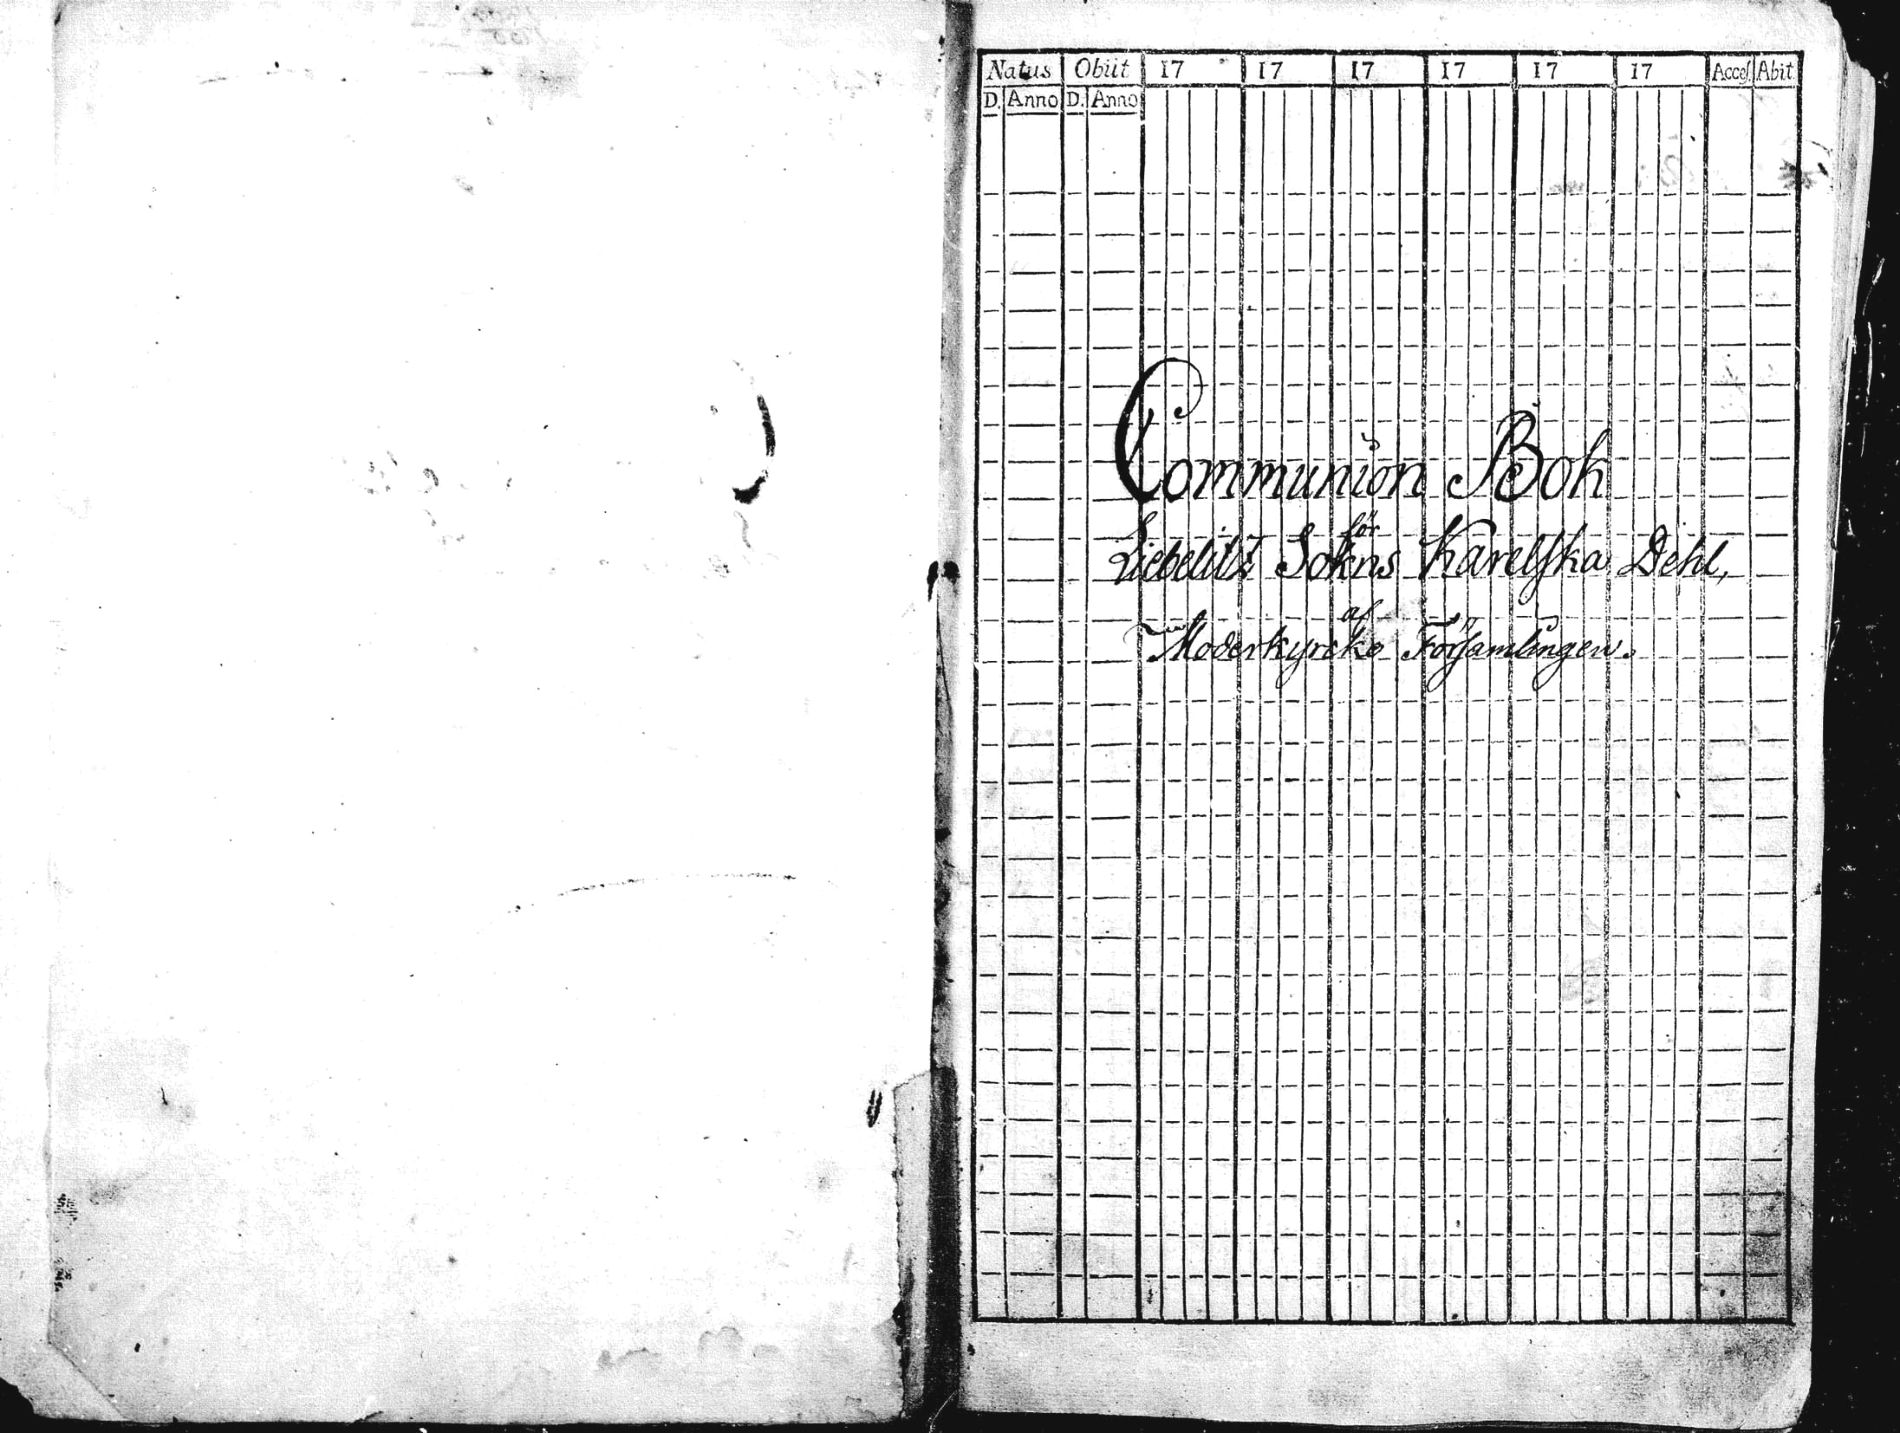 Natus Obiit 17 17 17 17 17 17 Acces. Abit
D. Anno D. Anno
Communion Bok
för
Liebelitz Sokns Karelska Dehl,
af
Moderkyrcko Församlingen.